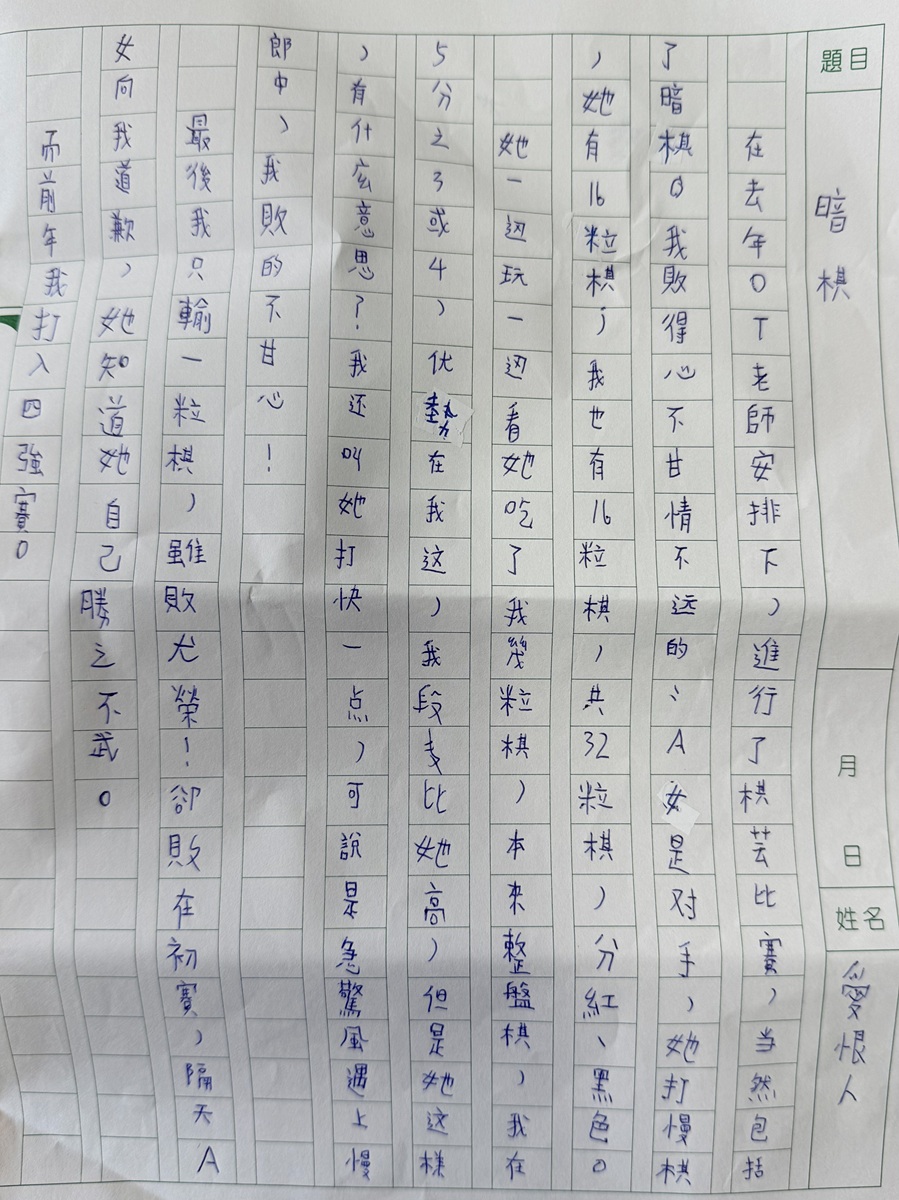 題目
暗棋
月
日
姓名
愛恨人
在去年。T老師安排下，進行了棋芸比賽，当然包括
了暗棋。我敗得心不甘情不远的；A女是对手，她打慢棋
，她有16粒棋；我也有16粒棋，共32粒棋，分紅、黑色。
她一边玩一边看她吃了我幾粒棋，本來整盤棋，我在
5分之3或4，优勢在我这，我段多比她高，但是她这樣
，有什庅意思？我还叫她打快一点，可說是急驚風遇上慢
郎中，我敗的不甘心！
最後我只輸一粒棋，雖敗尤榮！卻敗在初賽，隔天A
女向我道歉，她知道她自己勝之不武。
而前年我打入四強賽。